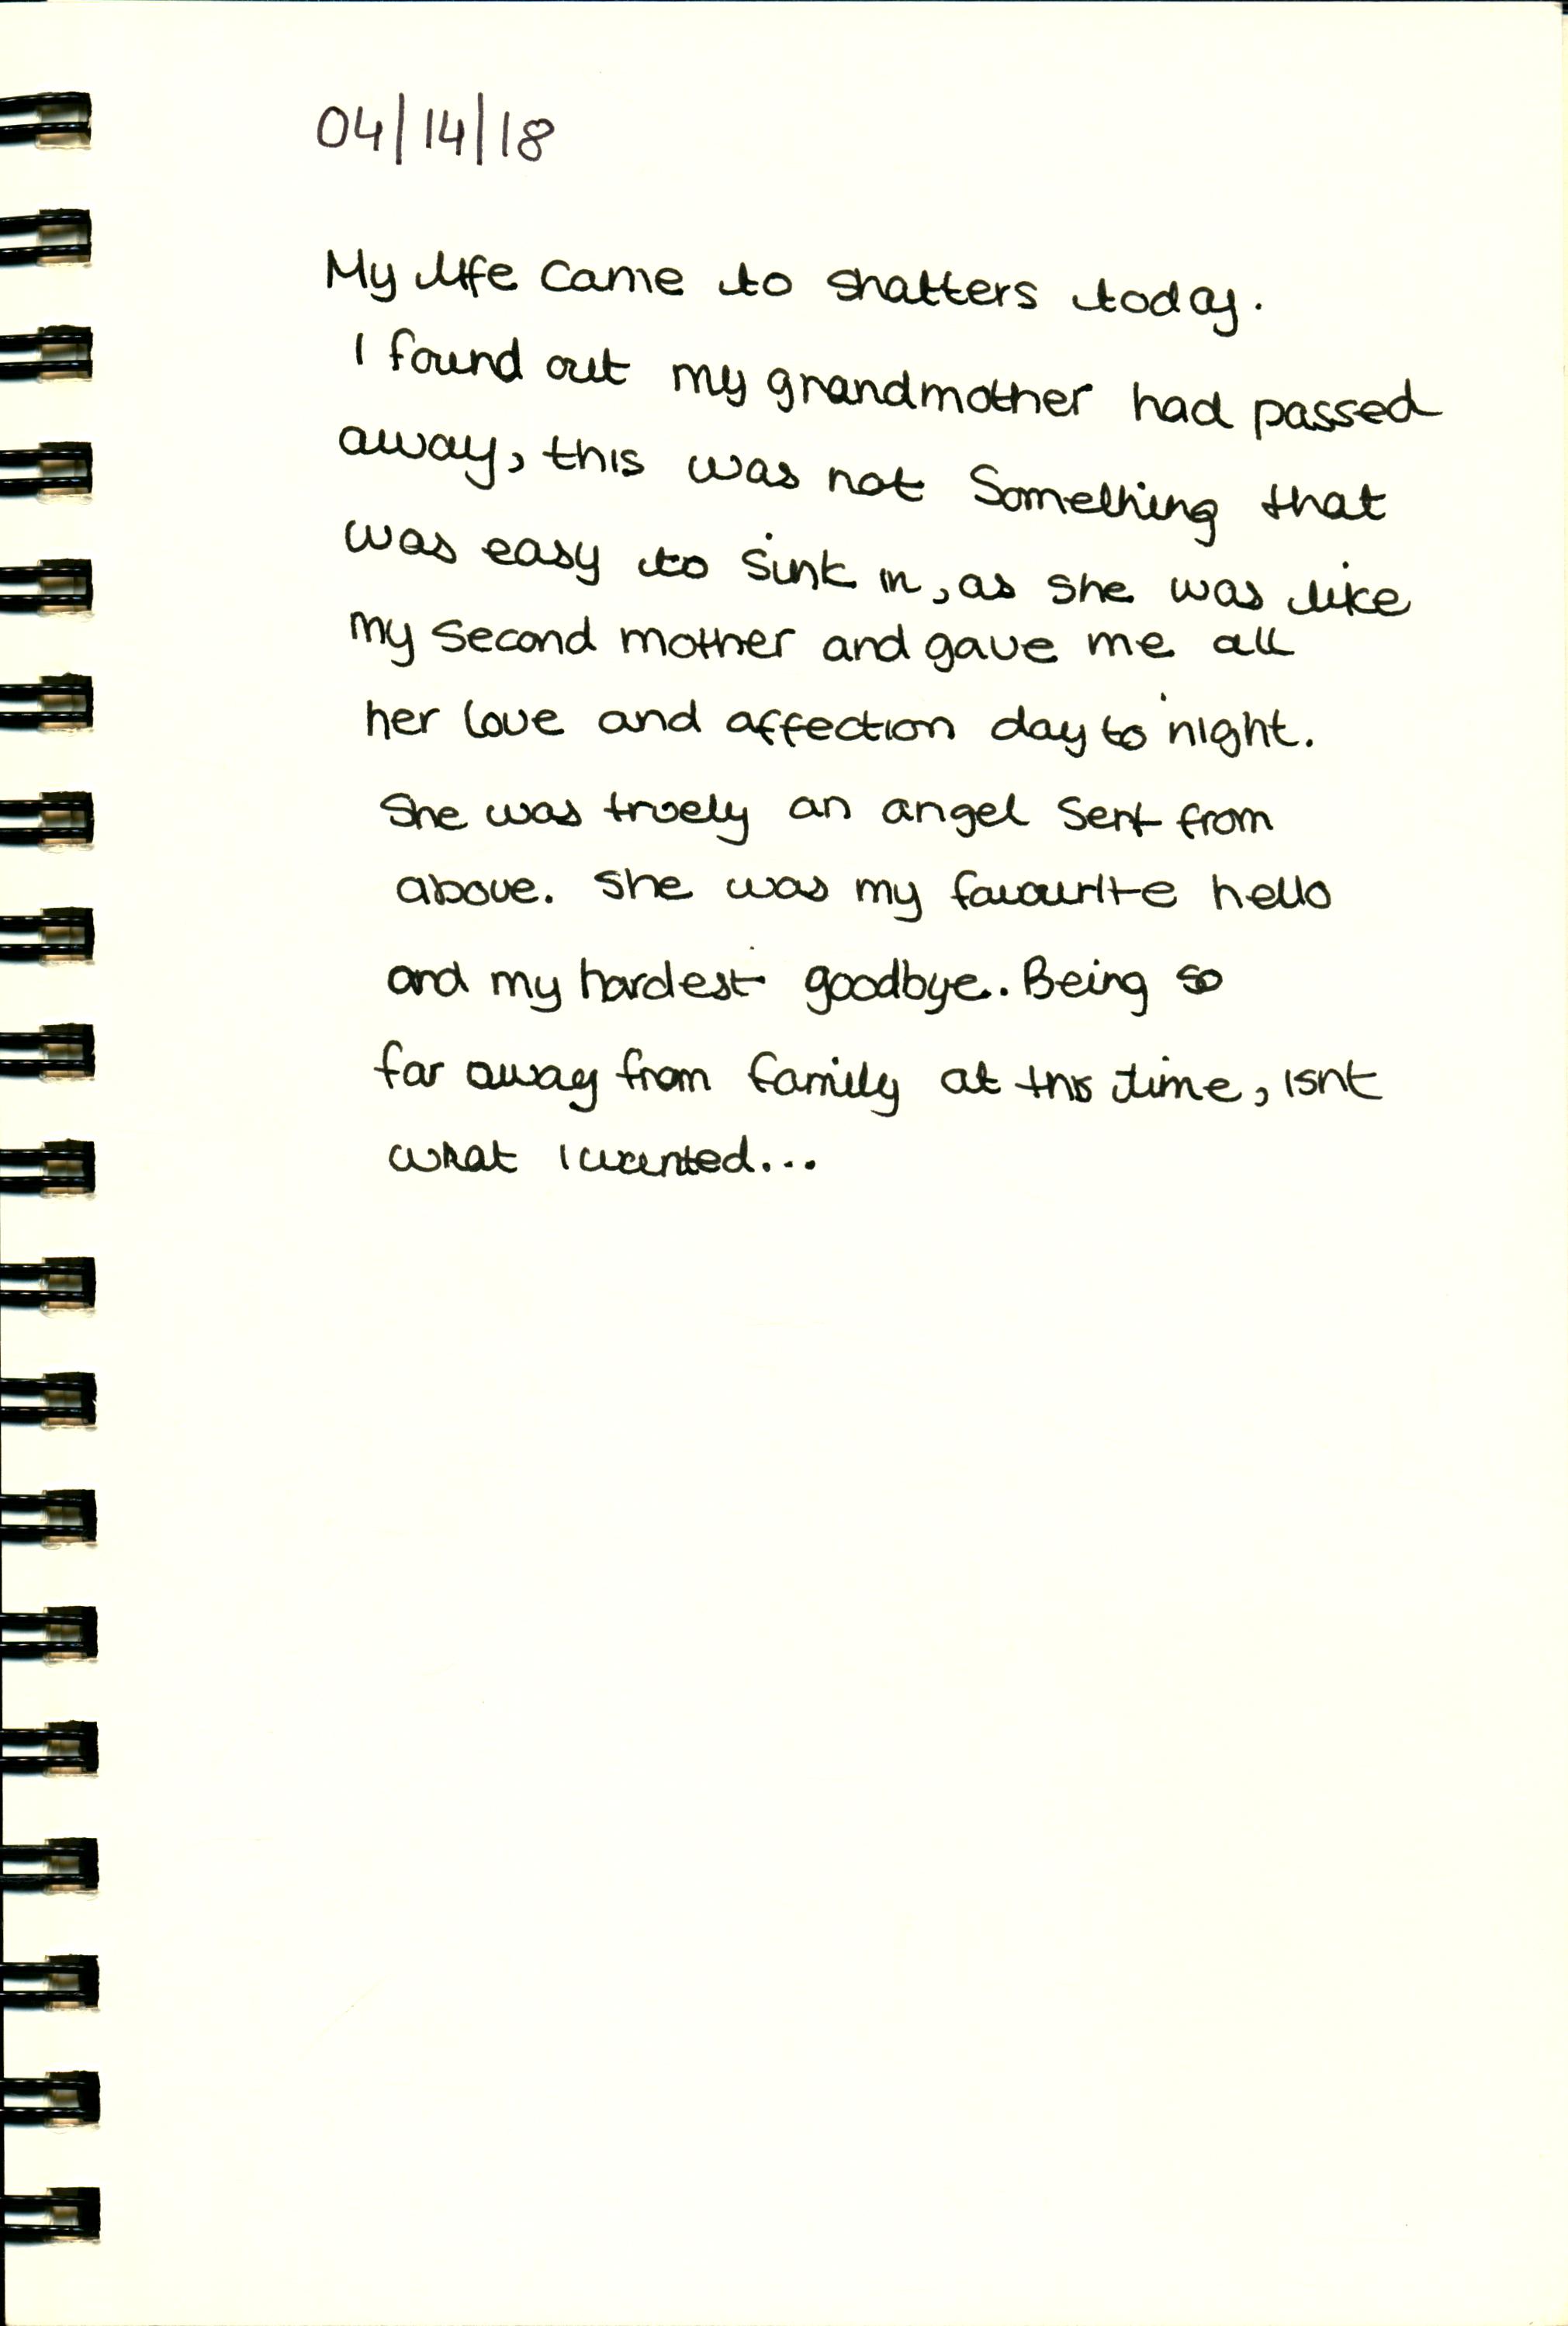 04/14/18
My life came to shatters today.
I found out my grandmother had passed
away, this was not Something that
was easy to sink in, as she was like
my second mother and gave me all
her love and affection day to night.
She was truely an angel sent from
above. She was my favourite hello
and my hardest goodbye. Being so
far away from family at this time, isnt
what I wanted...